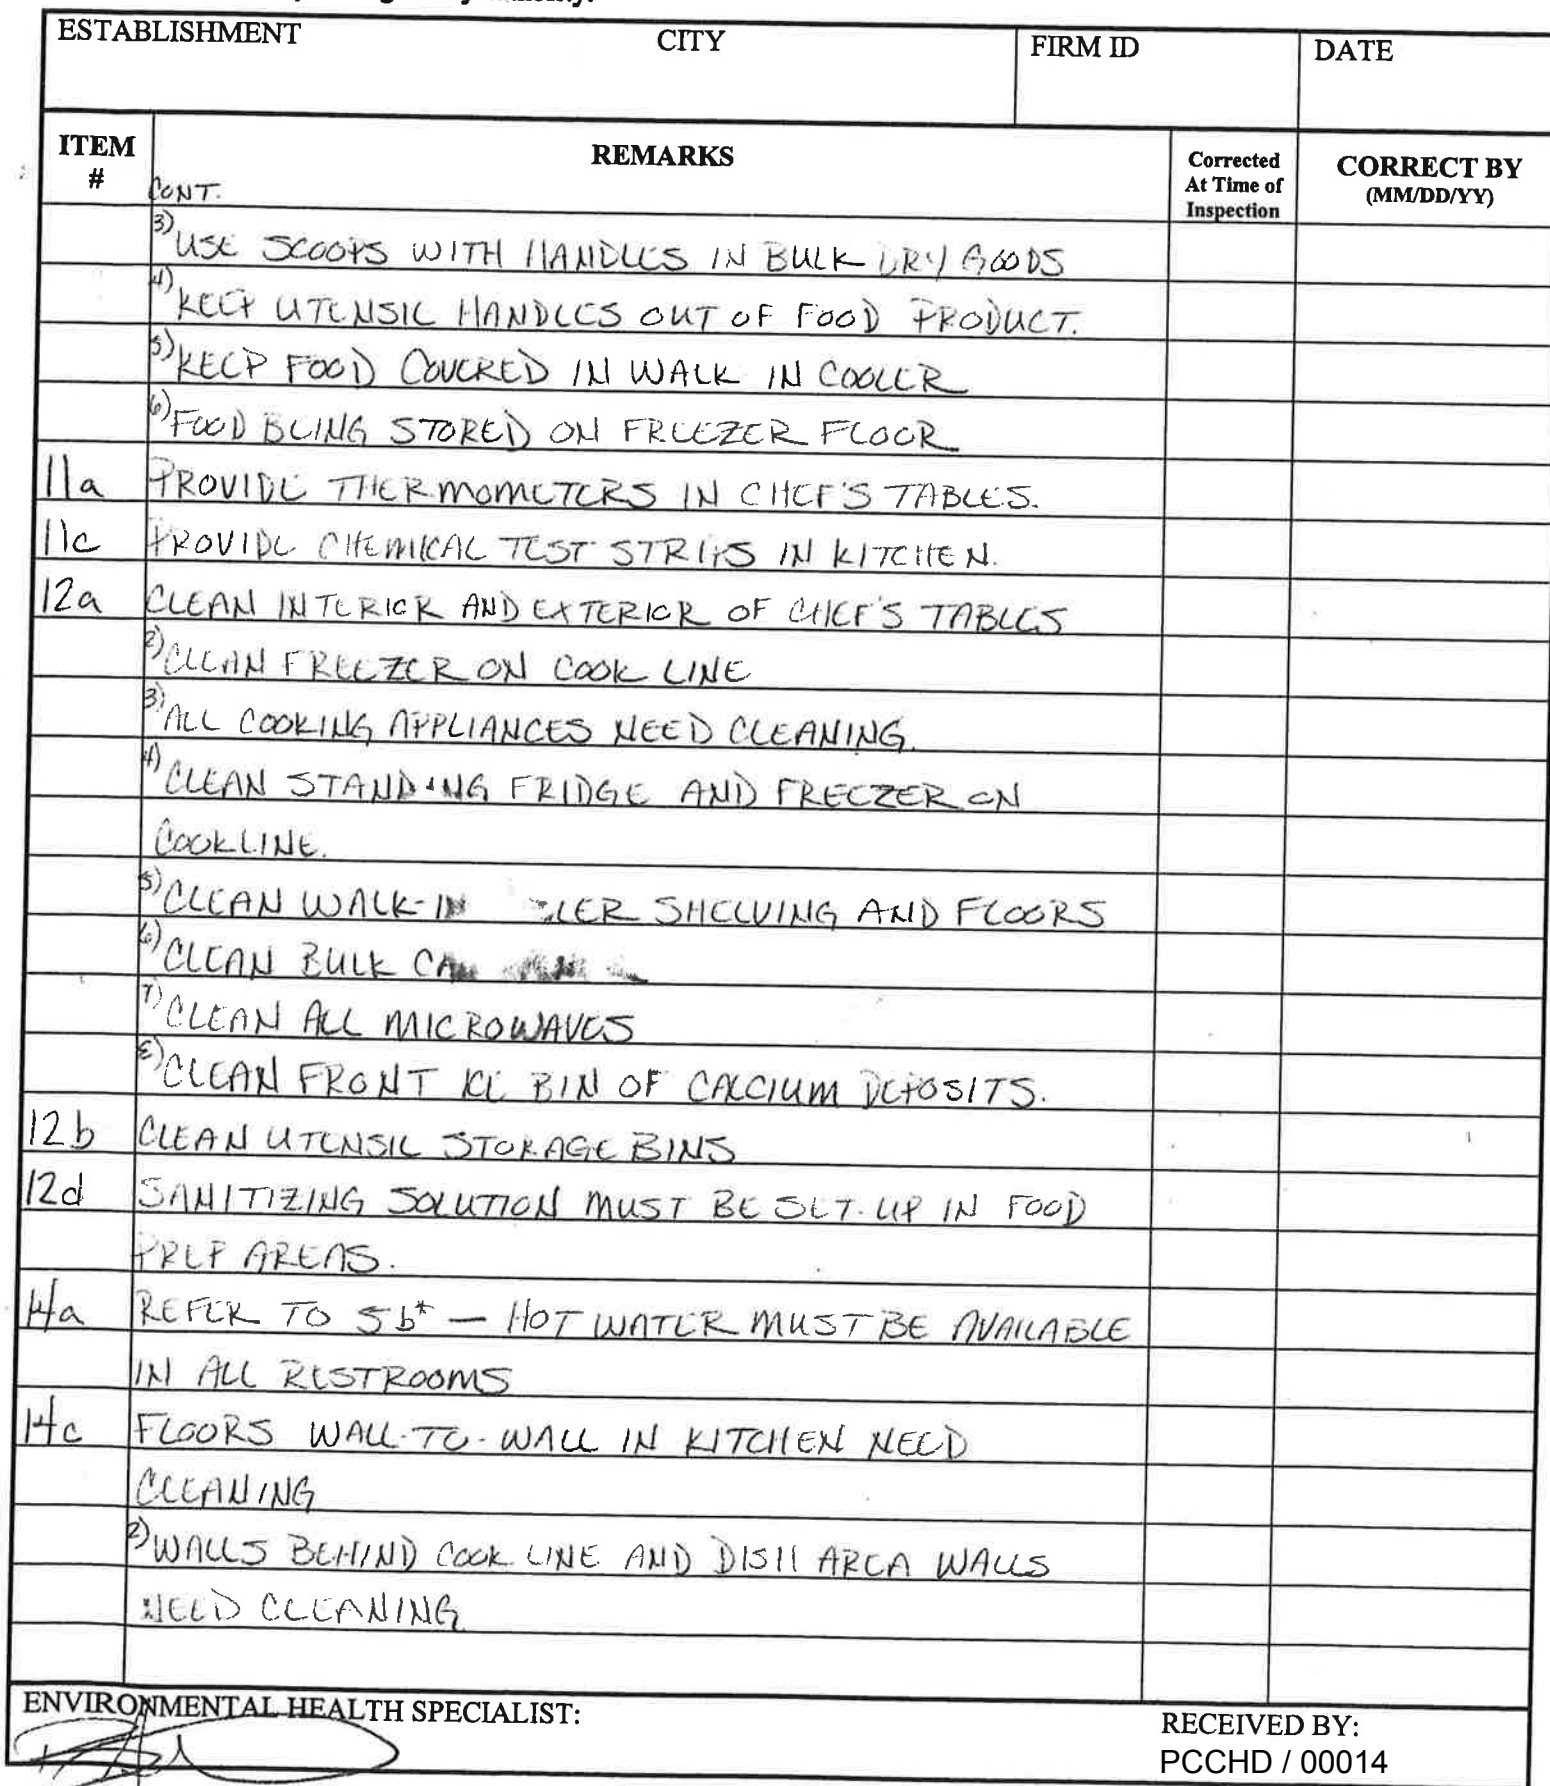 ESTABLISHMENT CITY FIRM ID DATE
ITEM # REMARKS Corrected At Time of Inspection CORRECT BY (MM/DD/YY)
CONT.
3) USE SCOOPS WITH HANDLES IN BULK DRY GOODS
4) KEEP UTENSIL HANDLES OUT OF FOOD PRODUCT.
5) KEEP FOOD COVERED IN WALK IN COOLER
6) FOOD BEING STORED ON FREEZER FLOOR
11a PROVIDE THERMOMETERS IN CHEF'S TABLES.
11c PROVIDE CHEMICAL TEST STRIPS IN KITCHEN.
12a CLEAN INTERIOR AND EXTERIOR OF CHEF'S TABLES
2) CLEAN FREEZER ON COOK LINE
3) ALL COOKING APPLIANCES NEED CLEANING.
4) CLEAN STANDING FRIDGE AND FREEZER ON
COOKLINE.
5) CLEAN WALK-IN SHELVING AND FLOORS
6) CLEAN BULK
7) CLEAN ALL MICROWAVES
8) CLEAN FRONT ICE BIN OF CALCIUM DEPOSITS.
12b CLEAN UTENSIL STORAGE BINS
12d SANITIZING SOLUTION MUST BE SET-UP IN FOOD
PREP AREAS.
14a REFER TO 5b* — HOT WATER MUST BE AVAILABLE
IN ALL RESTROOMS
14c FLOORS WALL-TO-WALL IN KITCHEN NEED
CLEANING
2) WALLS BEHIND COOK LINE AND DISH AREA WALLS
NEED CLEANING
ENVIRONMENTAL HEALTH SPECIALIST: RECEIVED BY:
PCCHD / 00014